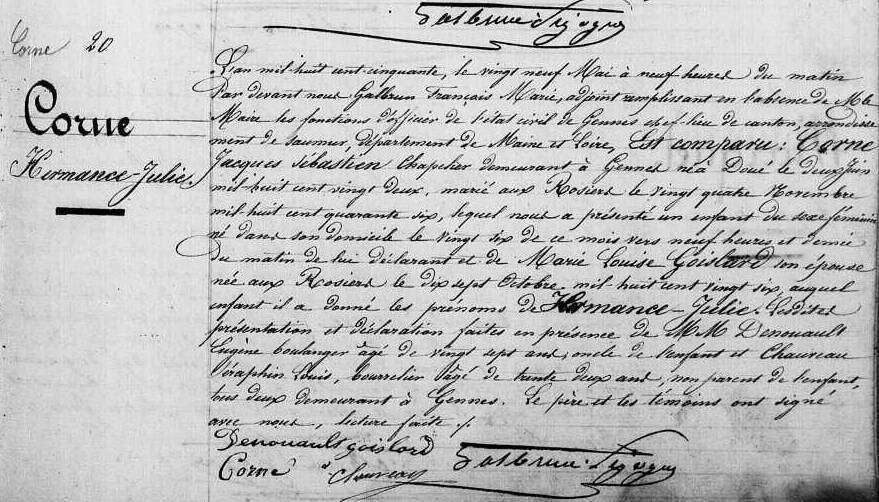 Galbrun Fr
Corne 20
Corne
Hermance-Julie.
L'an mil-huit cent-cinquante, le vingt neuf Mai à neuf heures du matin
Par devant nous Galbrun François Marie, adjoint remplissant en l'absence de Mr le
Maire les fonctions d'officier de l'état civil de Gennes chef-lieu de canton, arrondisse
ment de Saumur, département de Maine et Loire, Est comparu : Corne
Jacques Sébastien Chapelier demeurant à Gennes né à Doué le deux Juin
mil-huit cent vingt deux, marié aux Rosiers le vingt quatre Novembre
mil huit cent quarante six, lequel nous a présenté un enfant du sexe féminin
né dans son domicile le vingt six de ce mois vers neuf heures et demie
du matin de lui déclarant et de Marie Louise Goislard son épouse
née aux Rosiers le dix sept Octobre mil huit cent vingt six, auquel
enfant il a donné les prénoms de Hermance-Julie. Lesdites
présentation et déclaration faites en présence de M.M. Denouault
Eugène boulanger âgé de vingt sept ans, oncle de l'enfant et Chauveau
Séraphin Louis, bourrelier âgé de trente deux ans, non parent de l'enfant,
tous deux demeurant à Gennes. Le père et les témoins ont signé
avec nous, lecture faite ./.
Denouault goislard
Corne Chauveau Galbrun